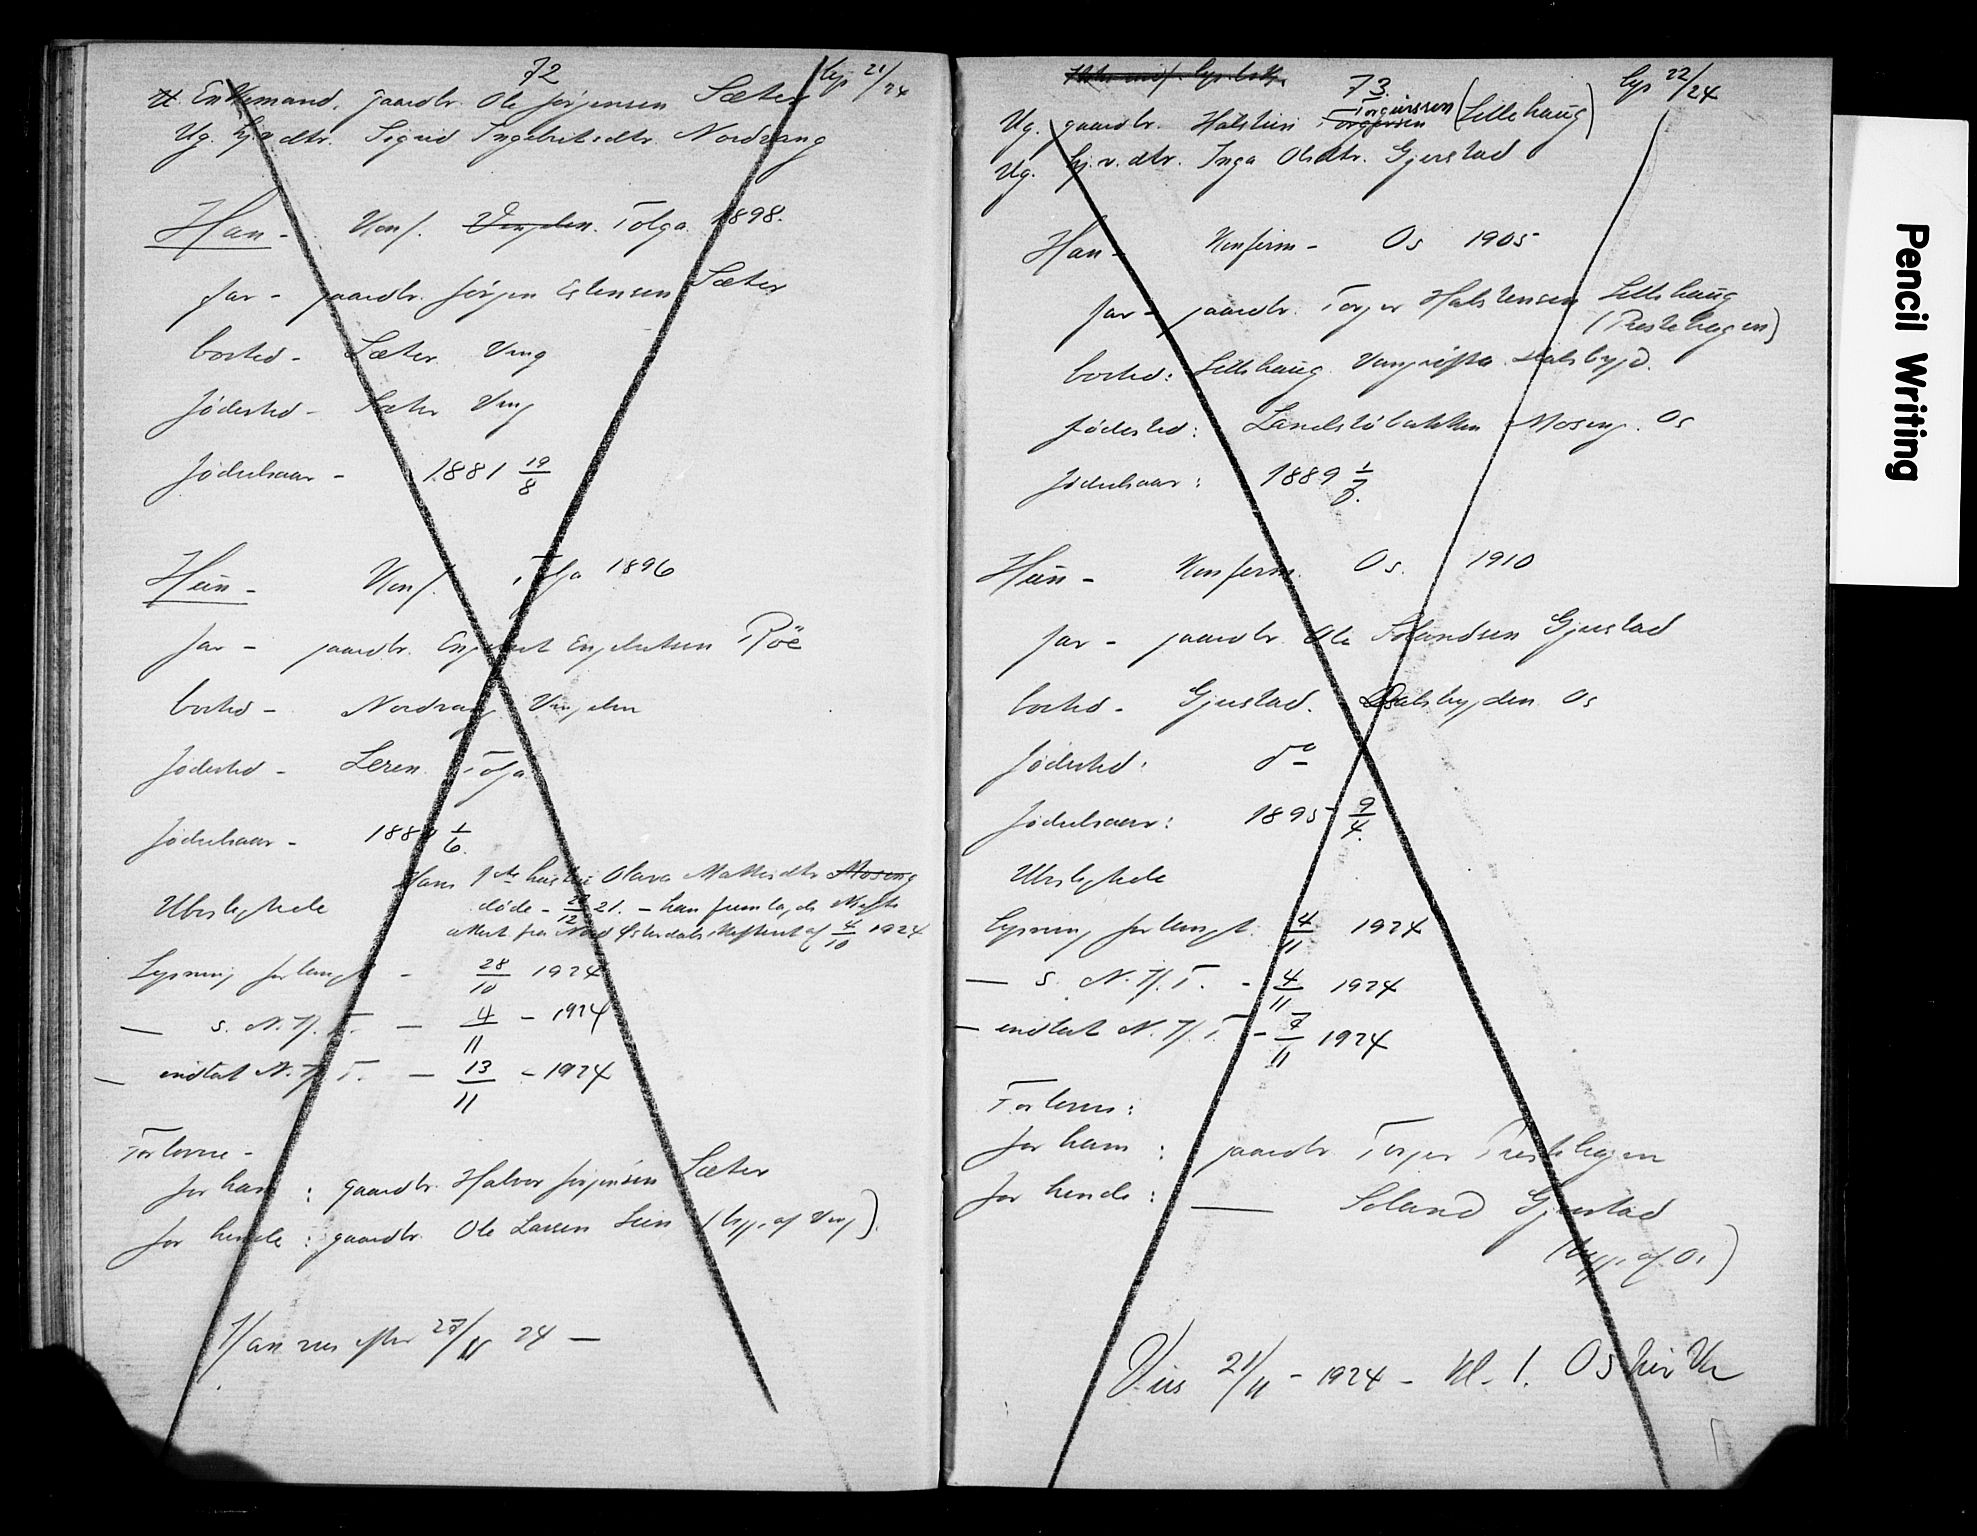 72
Lys 21/24
Enkemand, gaardbr. Ole Jørgensen Sæter
Ug. hjv. dtr. Sigrid Ingebritsdtr. Nordvang
Han - Konf. Vingelen. Tolga 1898.
far - gaardbr. Jørgen Estensen Sæter
bosted - Sæter Ving
fødested - Sæter Ving
fødselsaar - 1881 19/8
Hun - Konf. Tolga 1896
far - gaardbr. Engebret Engebretsen Röe
bosted - Nordvang Vingelen
fødested - Leren Tolga
fødselsaar - 1/6
Ubeslegtede Hans 1ste hustru Olava Mathisdtr Moseng
døde - 21. - han fremlagde skifte
attest fra Nord Østerdals skifteret af 4/10 1924
Lysning forlangt - 28/10 1924
— s. N. H. T. - 4/11 - 1924
— indtat N. H. T. - 13/11 - 1924
Forlovere -
for ham : gaardbr. Halvor Jørgensen Sæter
for hende : gaardbr. Ole Larsen Lien (begge af Ving).
Kan vies efter 27/11 24 —
73.
Lys 22/24
Ug. gaardbr. Halstein Torgersen Torgeirssen (Lillehaug)
Ug. hj. v. dtr. Inga Olsdtr. Gjerstad
Han - Konfirm - Os 1905
far - gaardbr. Torger Halstensen Lillehaug
(Prestehagen)
bosted: Lillehaug Vangrøfta Dalsbygd.
fødested: Moseng. Os
fødselsaar: 1889
Hun - Konfirm. Os. 1910
far - gaardbr. Ole Gjerstad
bosted - Gjerstad. Dalsbygden Os
fødested: do
fødselsaar: 1895 9/4.
Ubeslegtede
Lysning forlangt. 4/11 1924
— s. N. H. T. - 4/11 1924
— indtat N. H. T. - 7/11 1924
Forlovere:
for ham : gaardbr Torger Prestehagen
for hende : — Gjerstad
(begge af Os)
Vies 21/11 - 1924 - Kl. 1. Os kirke
Pencil Writing